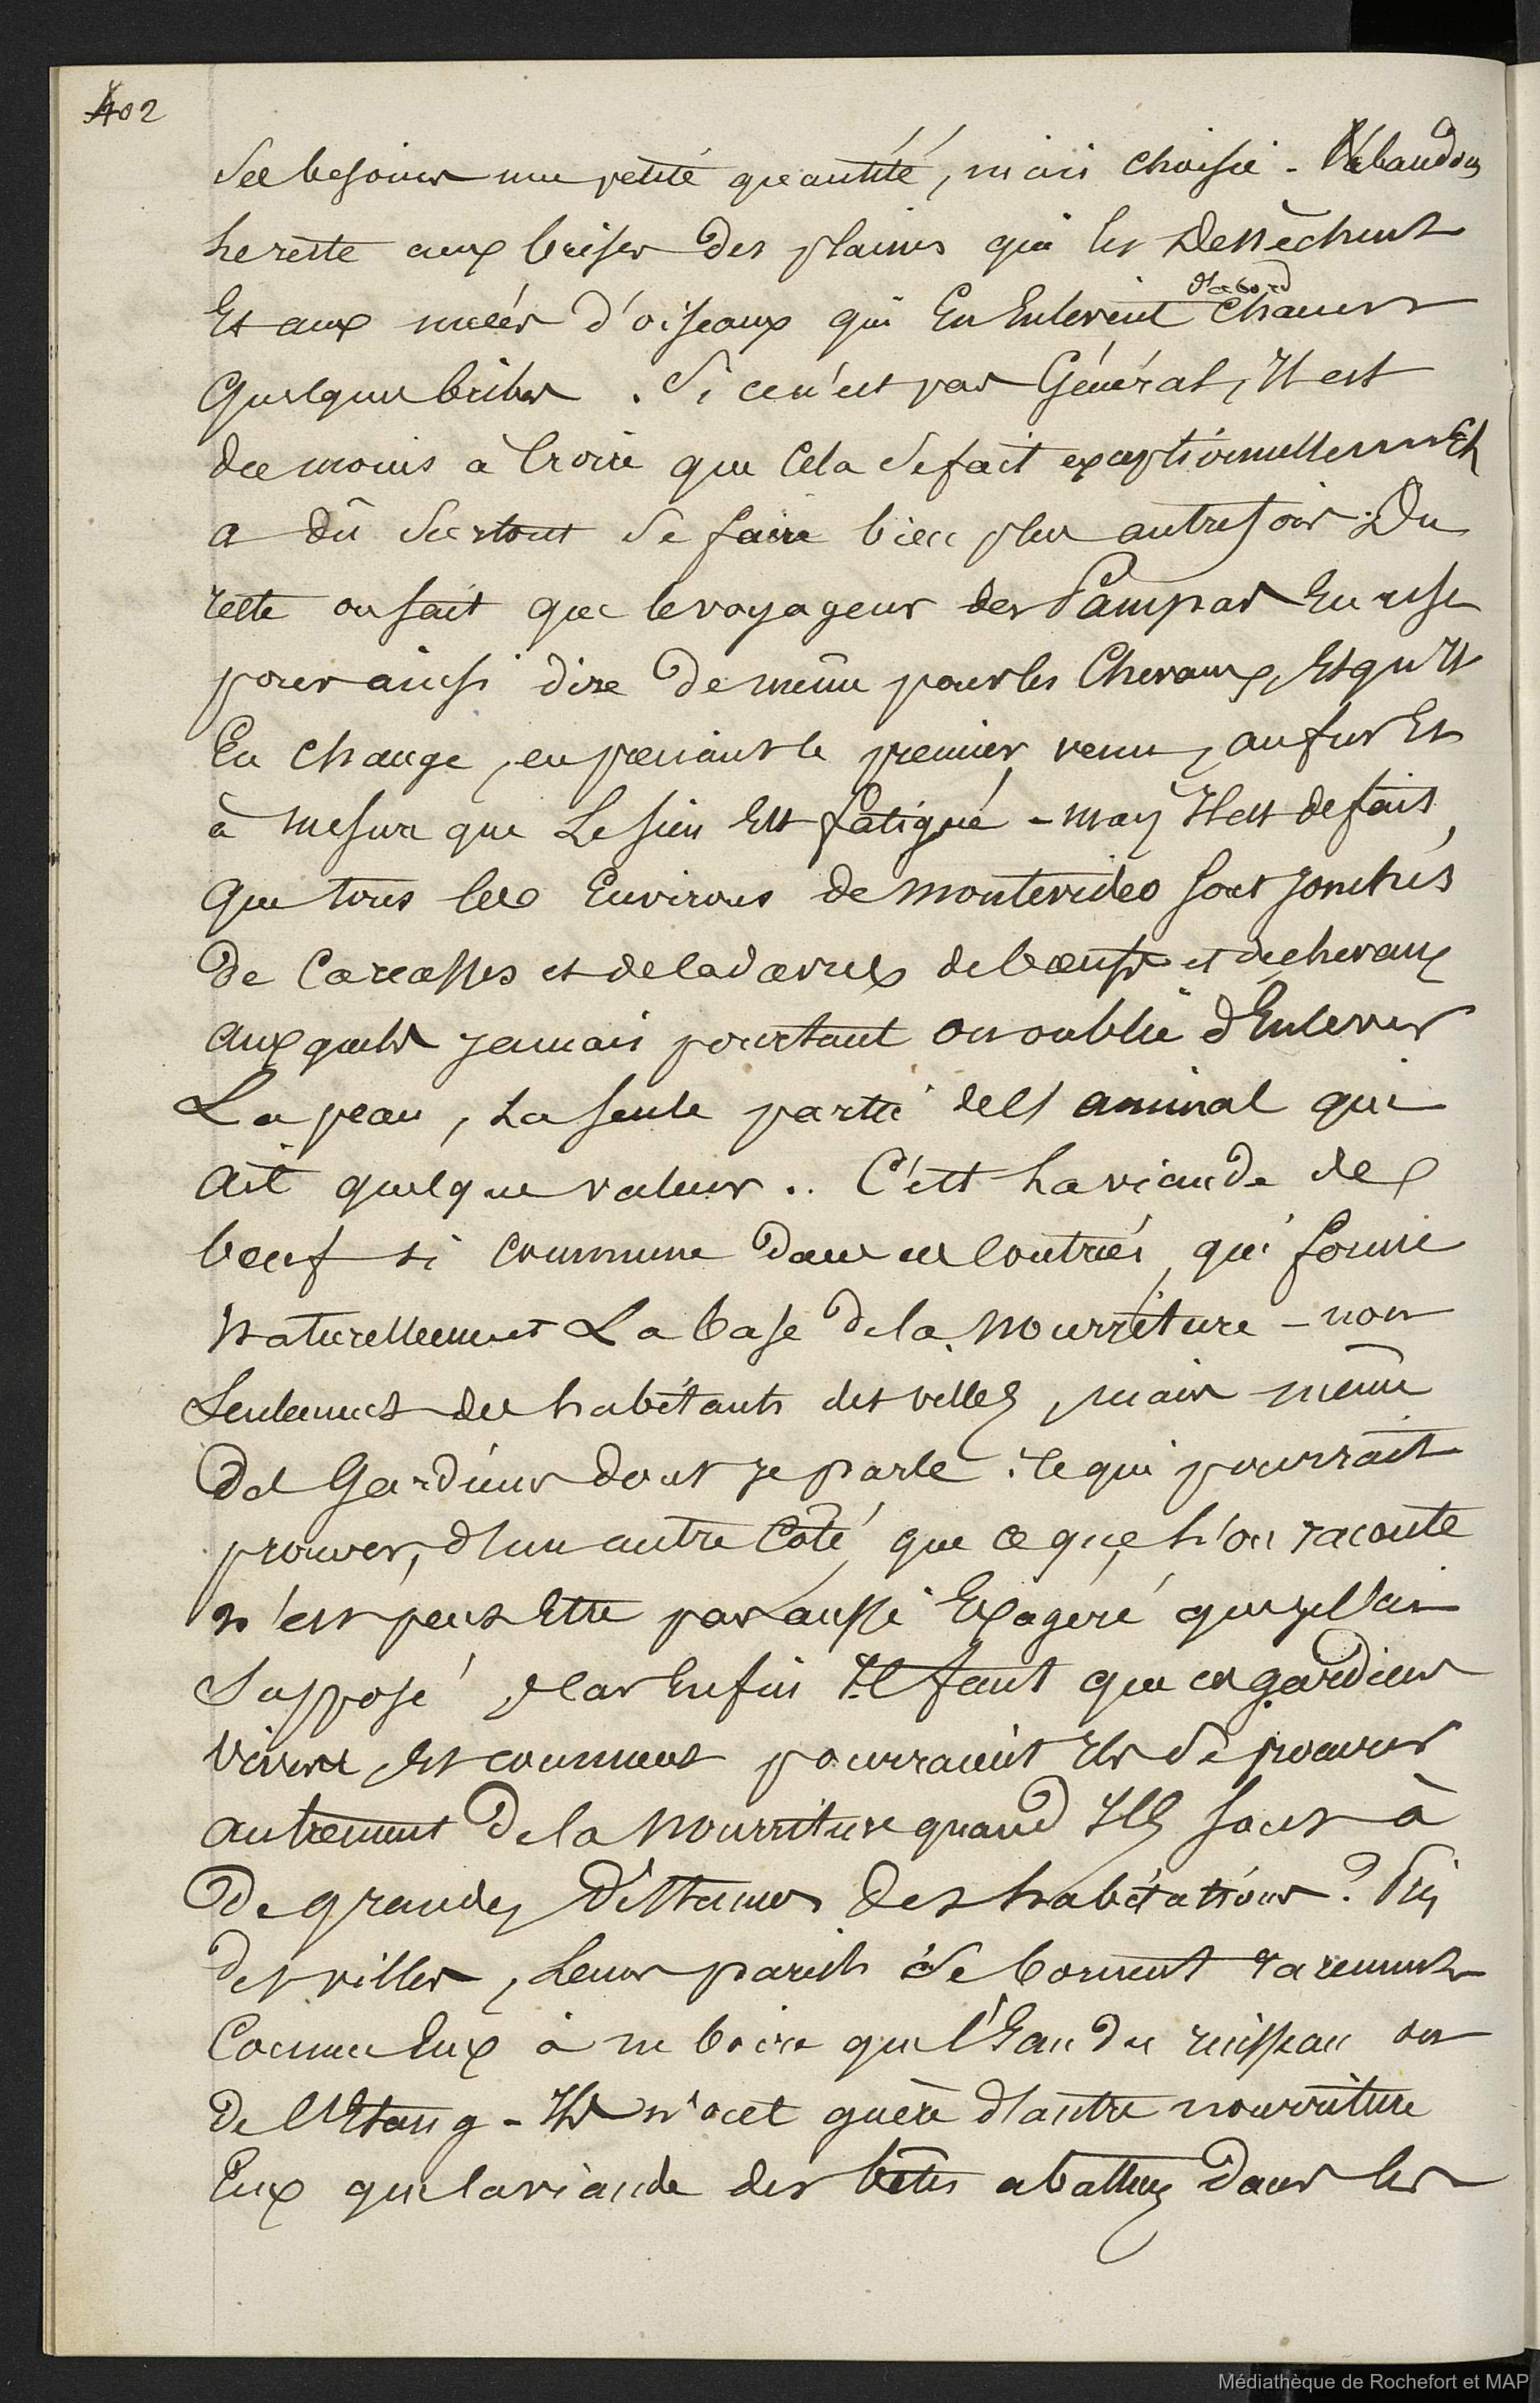 402
ses besoins une petite quantité, mais choisie - Il abandonne
le reste aux brises des plaines qui les dessèchent
d'abord
Et aux nuées d'oiseaux qui En Enlèvent chacun
quelques bribes. Si ce n'est pas Général, Il est
du moins à croire que Cela se fait exceptionnellement Et
a dû surtout se faire bien plus autrefois. Du
reste on sait que le voyageur des Pampas En use
pour ainsi dire de même pour les Chevaux, Et qu'Il
En change, en prenant le premier venu, au fur Et
à mesure que Le sien Est fatigué - mais Il est de fait,
que tous les Environs de Montevideo sont jonchés
de Carcasses et de cadavres de boeufs et de chevaux
auxquels jamais pourtant on oublie d'Enlever
La peau, La seule partie de l'animal qui
ait quelque valeur.. C'est La viande de
boeuf si commune dans ces Contrées, qui forme
Naturellement La base de la Nourriture - non
Seulement des habitants des villes, mais même
des Gardiens dont je parle. Ce qui pourrait
prouver, d'un autre Coté, que ce que L'on raconte
n'est peut Etre pas aussi Exagéré que je l'ai
supposé, Car Enfin Il faut que ces gardiens
vivent, Et comment pourraient Ils se procurer
autrement de la Nourriture quand Ils sont à
de grandes distances des habitations? Près
des villes, Leurs pareils se bornent rarement
Comme Eux à ne boire que l'Eau du ruisseau ou
de l'Etang - Ils n'ont guère d'autre nourriture
Eux que la viande des bêtes abattues dans les
Médiathèque de Rochefort et MAP